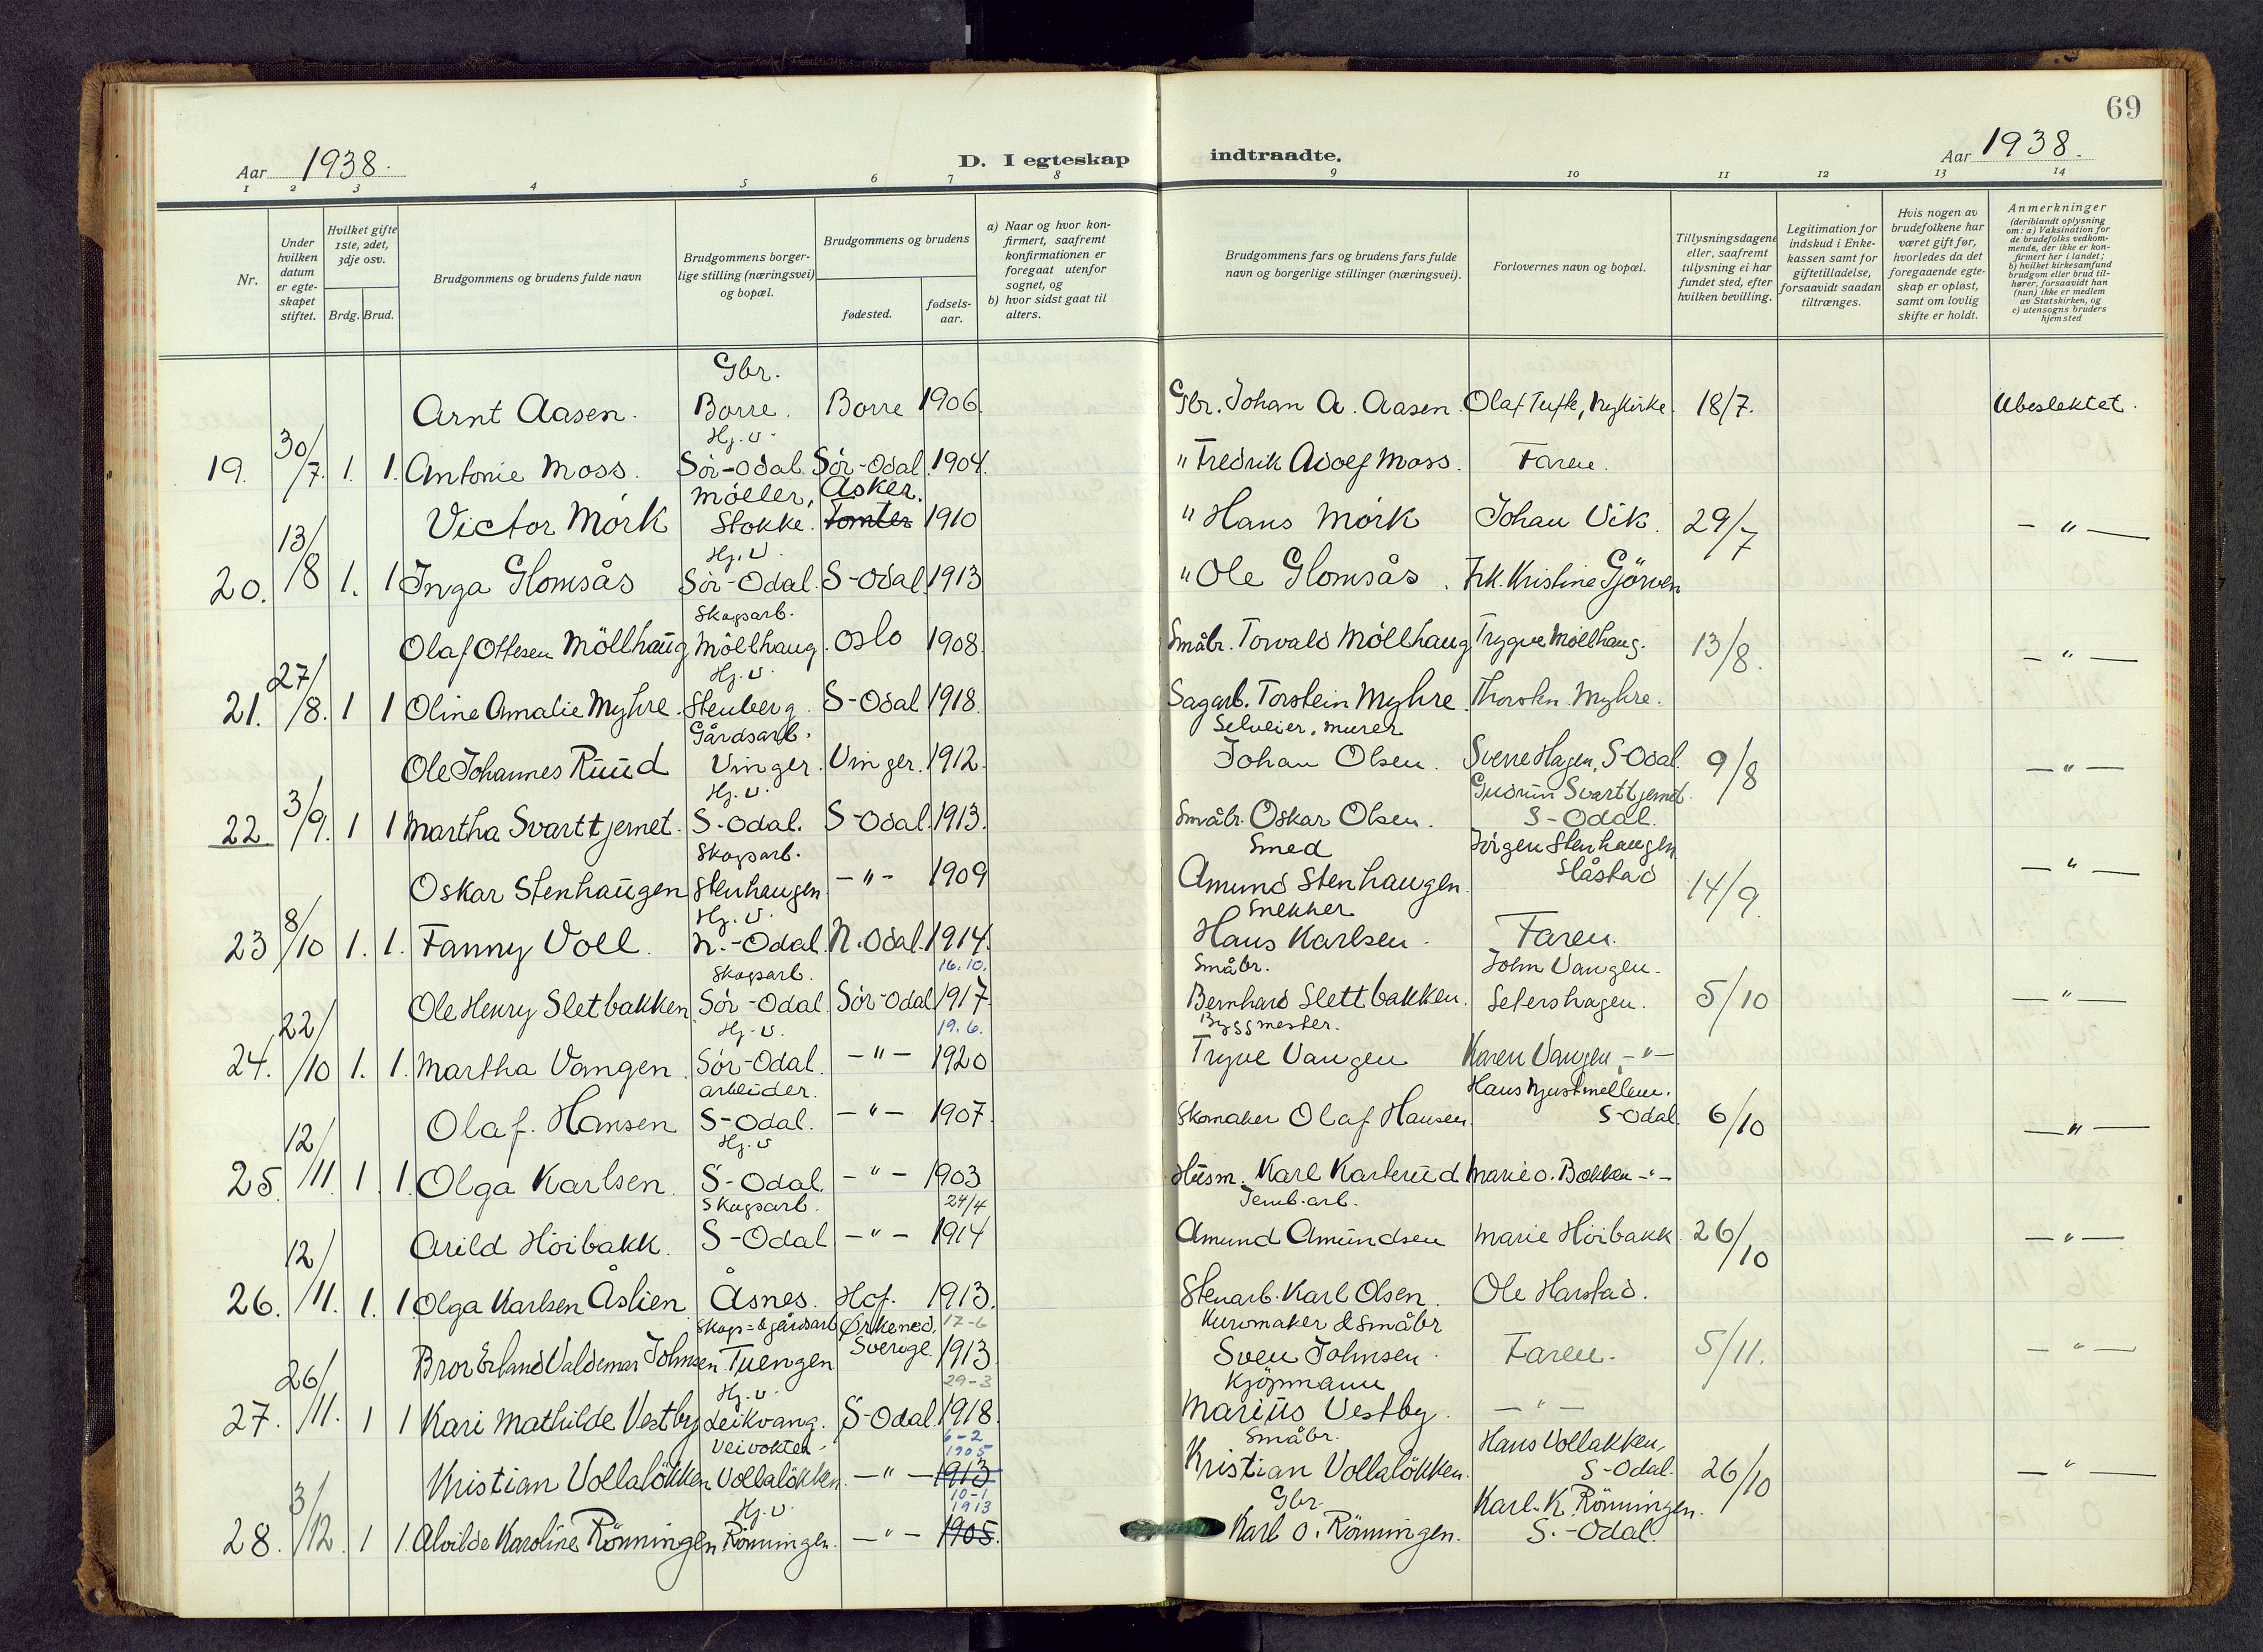 69
Aar 1938. D. I egteskap indtraadte. Aar 1938.
1 2 3 4 5 6 7 8 9 10 11 12 13 14
Nr.
Under hvilken datum er egte- skapet stiftet.
Hvilket gifte 1ste, 2det, 3dje osv.
Brdg. Brud.
Brudgommens og brudens fulde navn
Brudgommens borger- lige stilling (næringsvei) og bopæl.
Brudgommens og brudens
fødested.
fødsels- aar.
a) Naar og hvor kon- firmert, saafremt konfirmationen er foregaat utenfor sognet, og
b) hvor sidst gaat til alters.
Brudgommens fars og brudens fars fulde navn og borgerlige stillinger (næringsvei).
Forlovernes navn og bopæl.
Tillysningsdagene eller, saafremt tillysning ei har fundet sted, efter hvilken bevilling.
Legitimation for indskud i Enke- kassen samt for giftetilladelse, forsaavidt saadan tiltrænges.
Hvis nogen av brudefolkene har været gift før, hvorledes da det foregaaende egte- skap er opløst, samt om lovlig skifte er holdt.
Anmerkninger (deriblandt oplysning om: a) Vaksination for de brudefolks vedkom- mende, der ikke er kon- firmert her i landet; b) hvilket kirkesamfund brudgom eller brud til- hører, forsaavidt han (hun) ikke er medlem av Statskirken, og c) utensogns bruders hjemsted
Gbr.
Arnt Aasen. Borre. Borre 1906. Gbr. Johan A. Aasen. Olaf Tufte, Nykirke. 18/7. Ubeslektet.
Hj. v.
19. 30/7. 1. 1. Antonie Moss. Sör-Odal Sör-Odal. 1904. " Fredrik Adolf Moss. Faren.
Möller, Asker.
Victor Mörk Stokke. Tomter 1910 " Hans Mörk Johan Vik. 29/7 - " -
Hj. v.
20. 13/8 1. 1 Inga Glomsås Sör-Odal. S-Odal. 1913 " Ole Glomsås. Frk. Kristine Gjörven
Skogsarb.
Olaf Ottesen Möllhaug Möllhaug. Oslo 1908. Småbr. Torvald Möllhaug Trygve Möllhaug. 13/8. - " -
Hj. v.
21. 27/8. 1 1 Oline Amalie Myhre. Stenberg. S-Odal 1918. Sagarb. Torstein Myhre. Thorsten Myhre.
Gårdsarb. Selveier, murer
Ole Johannes Ruud Vinger. Vinger. 1912. Johan Olsen. Sverre Hagen, S-Odal. 9/8 - " -
Hj. v. Gudrun Svarttjernet.
22. 3/9. 1 1 Martha Svarttjernet. S-Odal. S-Odal. 1913. Småbr. Oskar Olsen. S-Odal.
Skogsarb. Smed Jörgen Stenhaugen
Oskar Stenhaugen Stenhaugen - " - 1909 Amund Stenhaugen. Slåstad 14/9. - " -
Hj. v. Snekker
23 8/10 1. 1. Fanny Voll. N.-Odal. N.Odal. 1914. Hans Karlsen. Faren.
Skogsarb. 16.10. Småbr. John Vangen.
Ole Henry Sletbakken Sör-Odal. Sör-Odal 1917 Bernhard Slettbakken. Setershagen. 5/10 - " -
Hj. v. 19.6. Byggmester.
24. 22/10 1. 1. Martha Vangen. Sör-Odal. - " - 1920 Trygve Vangen Karen Vangen, - " -
arbeider. Hans
Olaf. Hansen S-Odal. - " - 1907. Skomaker Olaf Hansen. S-Odal. 6/10 - " -
Hj. v
25. 12/11. 1. 1. Olga Karlsen. S-Odal. - " - 1903 Husm. Karl Karterud Marie O. Bakken - " -
Skogsarb. 24/4 Jernb.arb.
Arild Höibakk. S-Odal - " - 1914 Amund Amundsen Marie Höibakk. 26/10 - " -
26. 12/11. 1. 1. Olga Karlsen Åslien Åsnes. Hof. 1913. Stenarb. Karl Olsen. Ole Harstad.
Skogs- & gårdsarb Ørkened. 17-6 Kurvmaker & småbr
Bror Erland Valdemar Johnsen Tuengen Sverige. 1913 Sven Johnsen. Faren. 5/11. - " -
Hj. v. 29-3 Kjöpmann
27. 26/11. 1 1 Kari Mathilde Vestby Leikvang. S-Odal. 1918. Marius Vestby. - " -
Veivokter. 6-2 1905 Småbr. Hans Vollakken,
Kristian Vollalökken Vollalökken. - " - 1913 Kristian Vollalökken. S-Odal. 26/10 - " -
Hj. v 10-1 1913 Gbr. Karl. K. Rönningen.
28. 3/12. 1 1. Alvilde Karoline Rönningen Rönningen. - " - 1905. Karl O. Rönningen. S.-Odal.